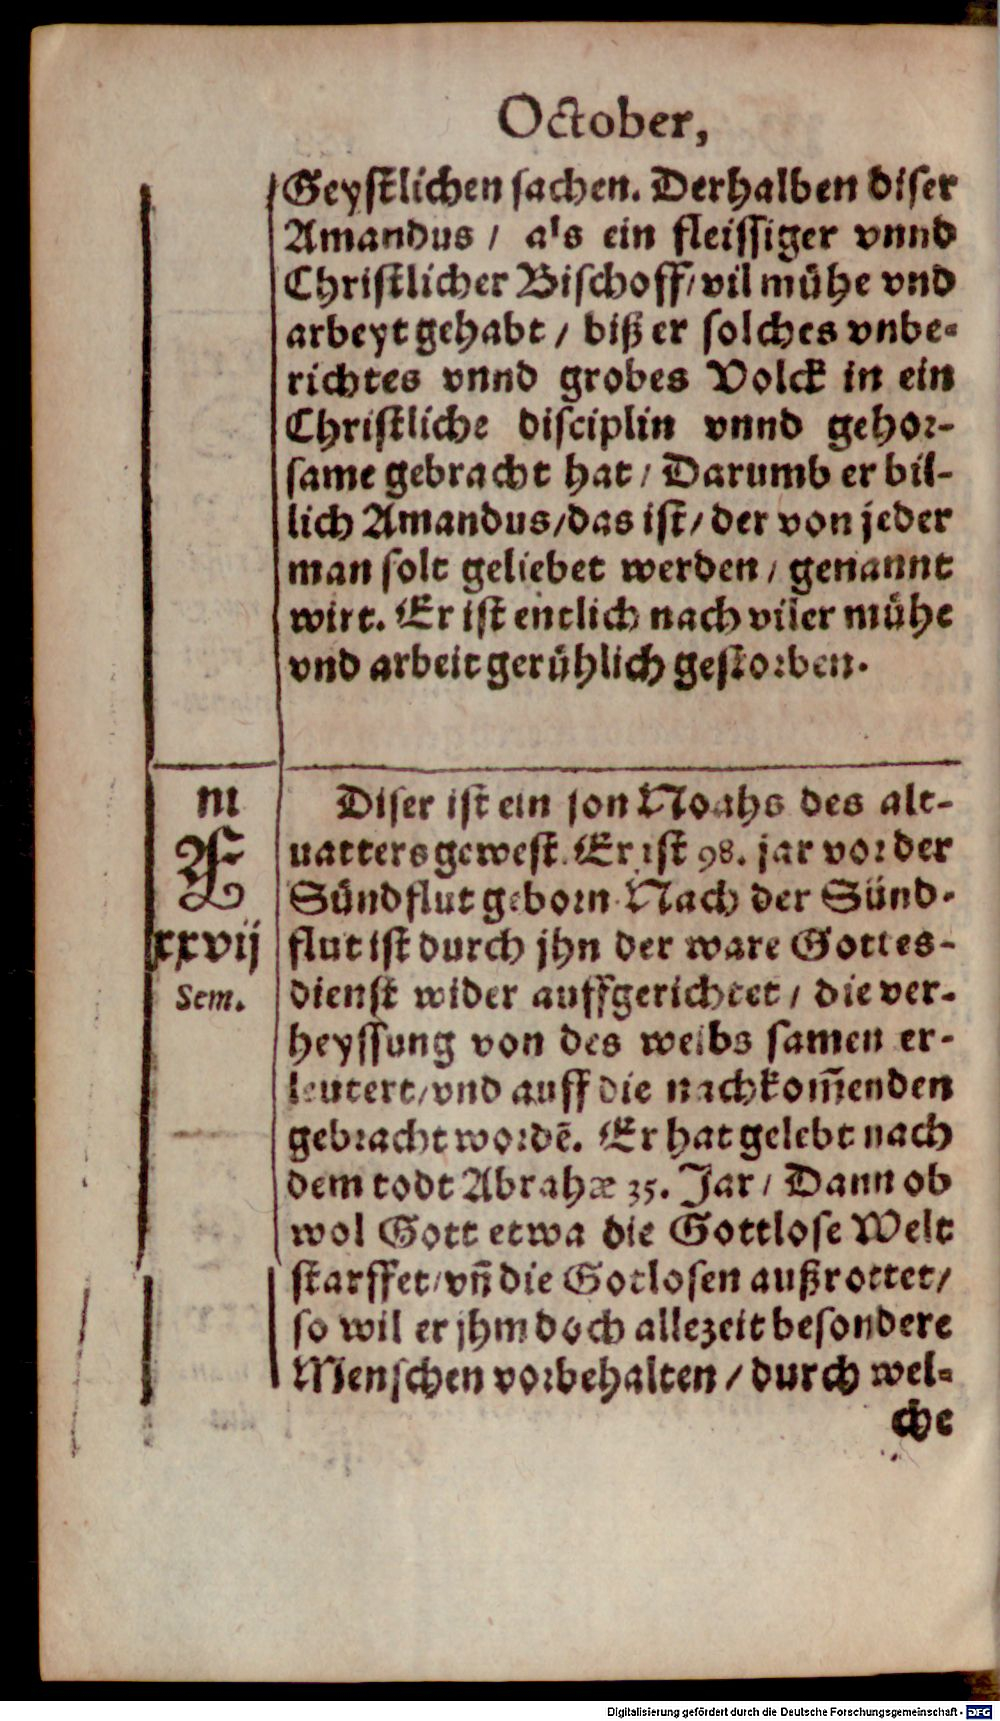 October,
Geystlichen sachen. Derhalben diser
Amandus / als ein fleissiger vnnd
Christlicher Bischoff / vil mühe vnd
arbeyt gehabt / biß er solches vnbe-
richtes vnnd grobes Volck in ein
Christliche disciplin vnnd gehor-
same gebracht hat / Darumb er bil-
lich Amandus / das ist / der von jeder
man solt geliebet werden / genannt
wirt. Er ist entlich nach viler mühe
vnd arbeit gerühlich gestorben.
m
F
xxvij
Sem.
Diser ist ein son Noahs des alt-
uatters gewest. Er ist 98. jar vor der
Sündflut geborn. Nach der Sünd-
flut ist durch jhn der ware Gottes-
dienst wider auffgerichtet / die ver-
heyssung von des weibs samen er-
leutert / vnd auff die nachkom̃enden
gebracht wordẽ. Er hat gelebt nach
dem todt Abrahæ 35. Jar / Dann ob
wol Gott etwa die Gottlose Welt
starffet / vñ die Gotlosen außrottet /
so wil er jhm doch allezeit besondere
Menschen vorbehalten / durch wel-
che
Digitalisierung gefördert durch die Deutsche Forschungsgemeinschaft - DFG